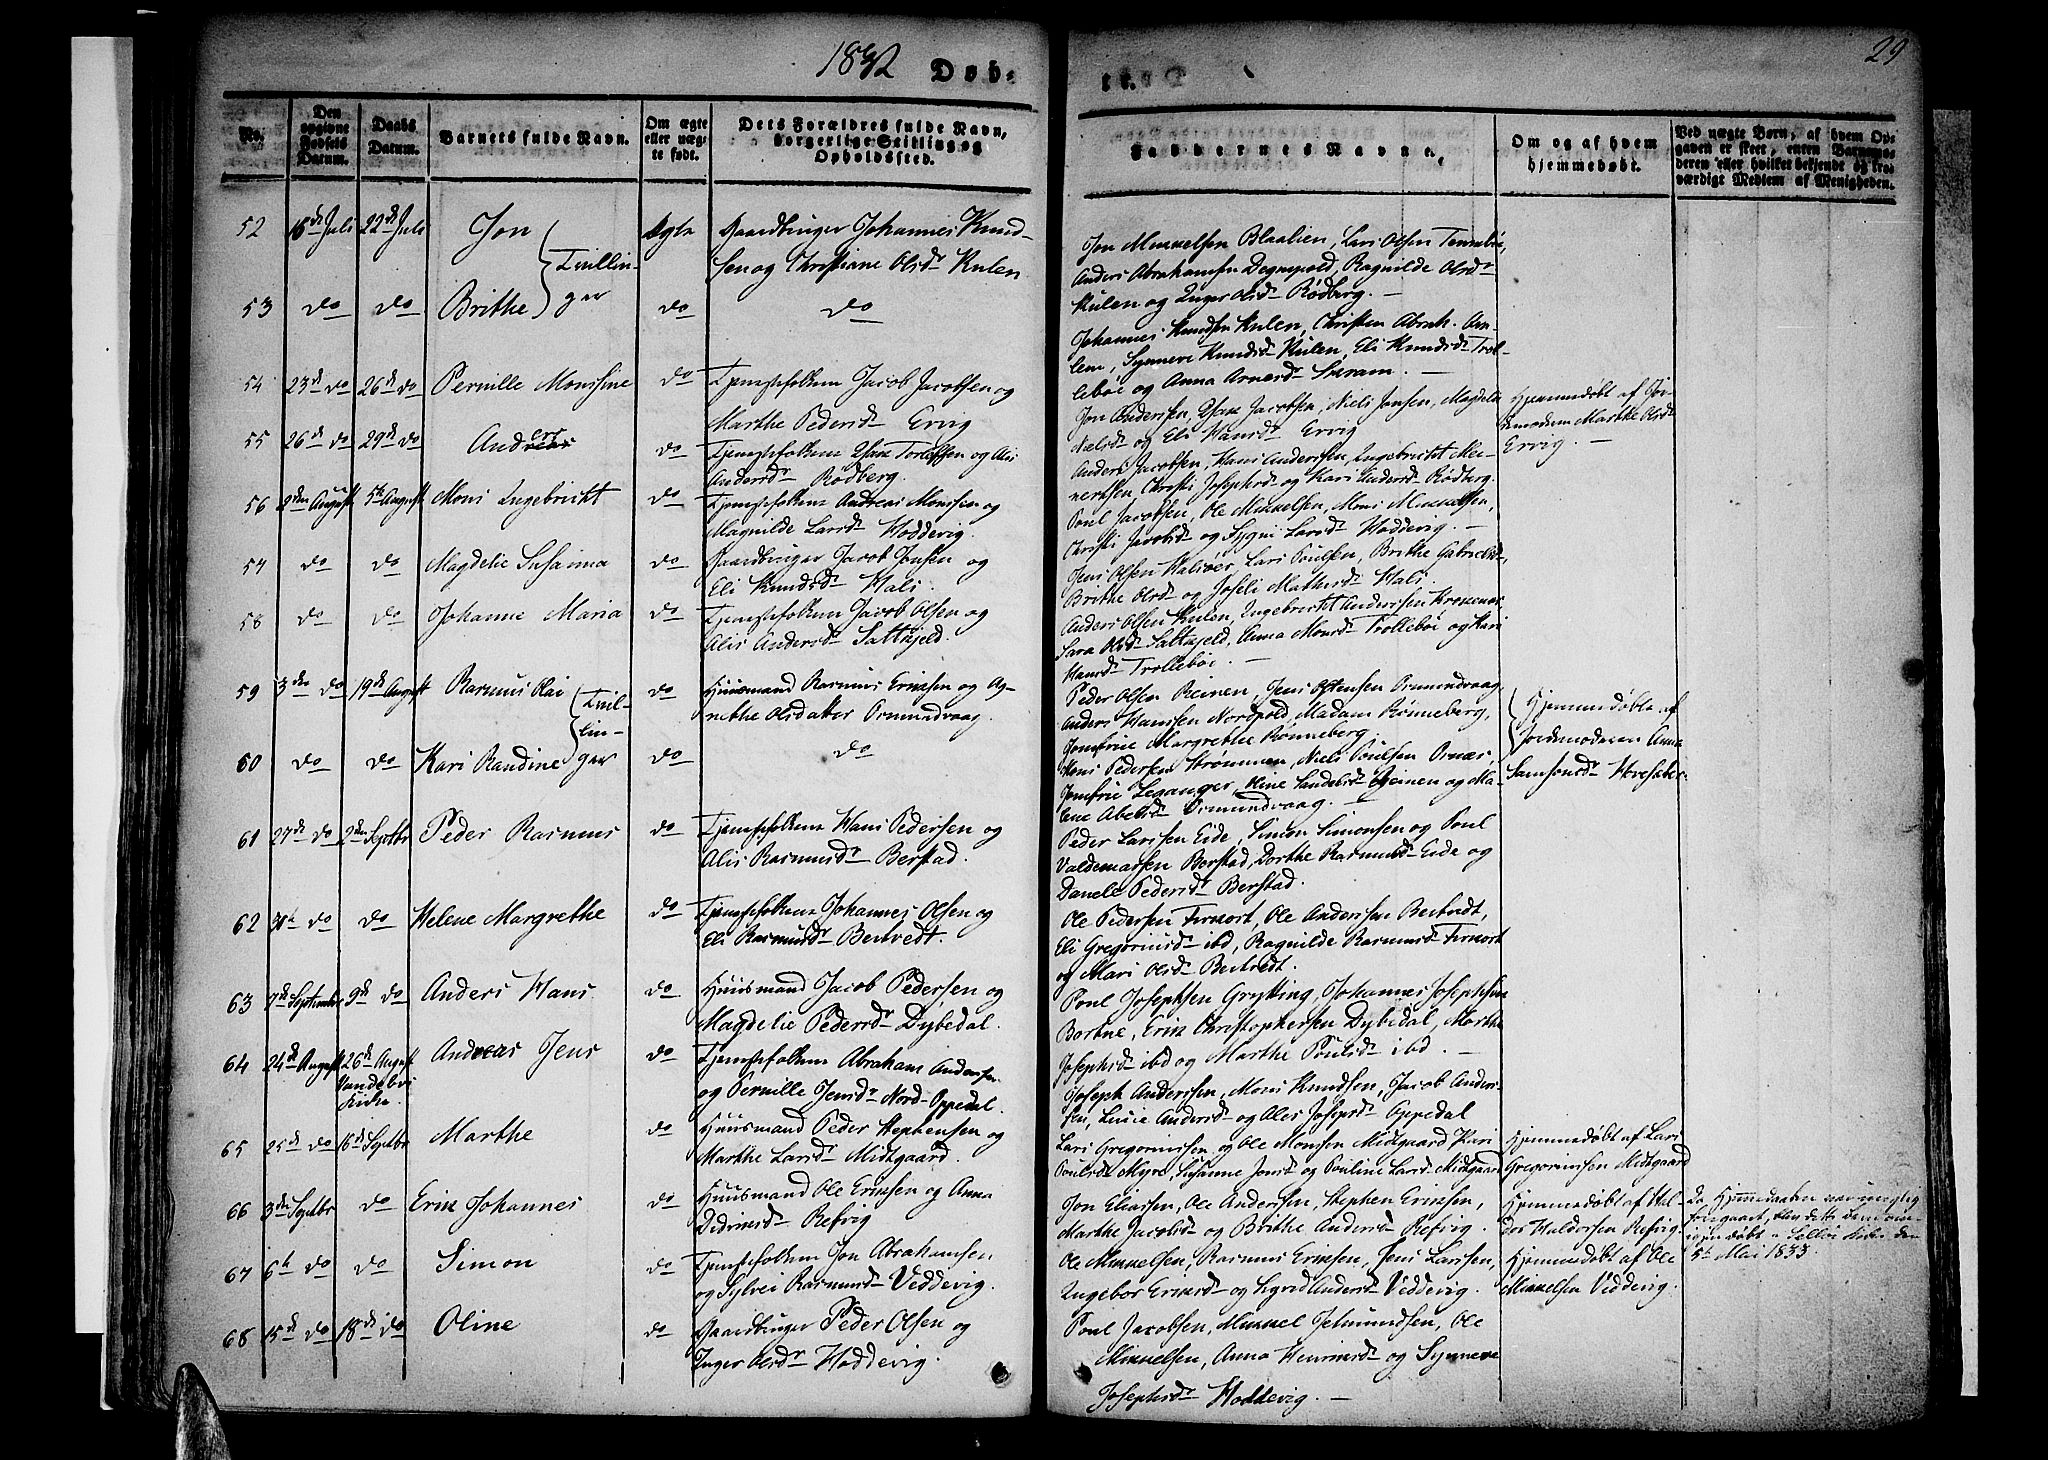 1832 Døb-
te. 29
No.
Den opgivne Fødsels Datum.
Daabs Datum.
Barnets fulde Navn.
Om ægte eller uægte født.
Dets Forældres fulde Navn, borgerlige Stilling og Opholdssted.
Faddernes Navne.
Om og af hvem hjemmedøbt.
Ved uægte Børn, af hvem Opgaven er skeet, enten Barnemoderen eller hvilket bekjendt og troværdigt Medlem af Menigheden.
52 22de Juli Jon Tvillin- Ægte Gaardbruger Johannes Knud-
sen og Christiane Olsdr Kulen
Jon Mikkelsen Blaalien, Lars Olsen
Anders Abrahamsen Ragnilde Olsdr
Kulen og Inger Olsdr Rødberg.
53 do do Brithe ger do do
Johannes Knudsen Kulen, Christen Abrah.
Synneve Knudsdr Kulen, Eli Knudsdr Trol-
lebøe og Anna Arnesdr
54 23de do 26de do Pernille Monsine do Tjenestefolkene Jacob Jacobsen og
Marthe Pedersdr Ervig
Jon Andersen, Jacobsen, Niels Jensen, Magdele
Nielsdr og Eli Hansdr Ervig
Hjemmedøbt af Jor-
demoderen Marthe Olsdr
Ervig.
55 26de do 29de do Anders do Tjenestefolkene og Alis
Andersdr Rødberg.
Anders Jacobsen, Hans Andersen, Ingebricht
Christi Josephsdr og Kari Andersdr Rødberg.
56 2den August 5te August Mons Ingebricht do Tjenestefolkene Andreas Monssen og
Magnilde Larsdr Hoddevig.
Poul Jacobsen, Ole Mikkelsen, Mons Mikkelsen,
Christi Jacobsdr og Larsdr Hoddevig.
57 do do Magdelie Susanna do Gaardbruger Jacob Jensen og
Eli Knudsdr Hals.
Jens Olsen Lars Poulsen, Brithe Gabrielsdr,
Brithe Olsdr og Hals.
58 do do Johanne Maria do Tjenestefolkene Jacob Olsen og
Alis Andersdr Sattkjeld.
Anders Olsen Kulen, Ingebricht Andersen
Sara Olsdr Sattkjeld, Anna Monsdr Trollebøe og Kari
Hansdr Trollebøe.
59 3die do 19de August Rasmus Olai Tvil- do Huusmand Rasmus Ericksen og Ag-
nethe Olsdatter Ormundvaag.
Peder Olsen Reinen, Jens Ormundvaag,
Anders Hanssen Nordpold, Madam Rønneberg,
Jomfrue Margrethe Rønneberg.
Hjemmedøbte af
Jordemoderen Anna
Samsonsdr
60 do do Kari Randine lin-ger do do
Mons Pedersen Strømmen, Niels Poulsen
Jomfrue Leganger, og Ma-
lene Abelsdr Ormundvaag.
61 27de do 2den Septbr Peder Rasmus do Tjenestefolkene Hans Pedersen og
Alis Rasmusdr Berstad.
Peder Larssen Eide, Simon Simonsen og Poul
Valdemarsen Berstad, Dorthe Rasmusdr Eide og
Danele Pedersdr Berstad.
62 do do Helene Margrethe do Tjenestefolkene Johannes Olsen og
Eli Rasmusdr Bertvedt.
Ole Pedersen Ole Andersen Bertvedt,
Eli Gregoriusdr ibd, Ragnilde Rasmusdr
og Mari Olsdr Bertvedt.
63 7de September 9de do Anders Hans do Huusmand Jacob Pedersen og
Magdelie Pedersdr Dybedal.
Poul Josephsen Grytting, Johannes Josephsen
Bortne, Erik Christophersen Dybedal, Marthe
Josephsdr ibd og Marthe Poulsdr ibd.
64 24de August 26de August Vandelvs Kirke. Andreas Jens do Tjenestefolkene Abraham Andersen
og Pernille Jensdr Nord-Oppedal.
Joseph Andersen, Mons Knudsen, Jacob Ander-
sen, Lucie Andersdr og Ales Josepsdr Oppedal
65 25de do 16de Septbr Marthe do Huusmand Peder Stephensen og
Marthe Larsdr Midtgaard.
Lars Gregoriussen og Ole Monsen Midtgaard Kari
Poulsdr Myre, Susanne Jensdr og Pouline Larsdr Midtgaard
Hjemmedøbt af Lars
Gregoriussen Midtgaard
66 3die Septbr do Erik Johannes do Huusmand Ole Ericksen og Anna
Didriksdr Refvig
Jon Eliassen, Ole Andersen, Stephen Ericksen,
Marthe Jacobsdr og Brithe Andersdr Refvig.
Hjemmedøbt af Hal-
dor Haldorsen Refvig.
Da Hjemedaaben var urigtig
foregaaet, blev dette Barn om-
igjen døbt i Selløe Kirke den
5te Mai 1833
67 6te do do Simon do Tjenestefolkene Jon Abrahamsen
og Sylvei Rasmusdr Veddevig.
Ole Mikkelsen, Rasmus Ericksen, Jens Larssen,
Ingebor Ericksdr og Sigrid Andersdr Veddevig.
Hjemmedøbt af Ole
Mikkelsen Veddevig.
68 15de do 18de do Oline do Gaardbruger Peder Olsen og
Inger Olsdr Hoddevig.
Poul Jacobsen, Mikkel Ole
Mikkelsen, Anna Henriksdr og Synneve
Josephsdr Hoddevig.